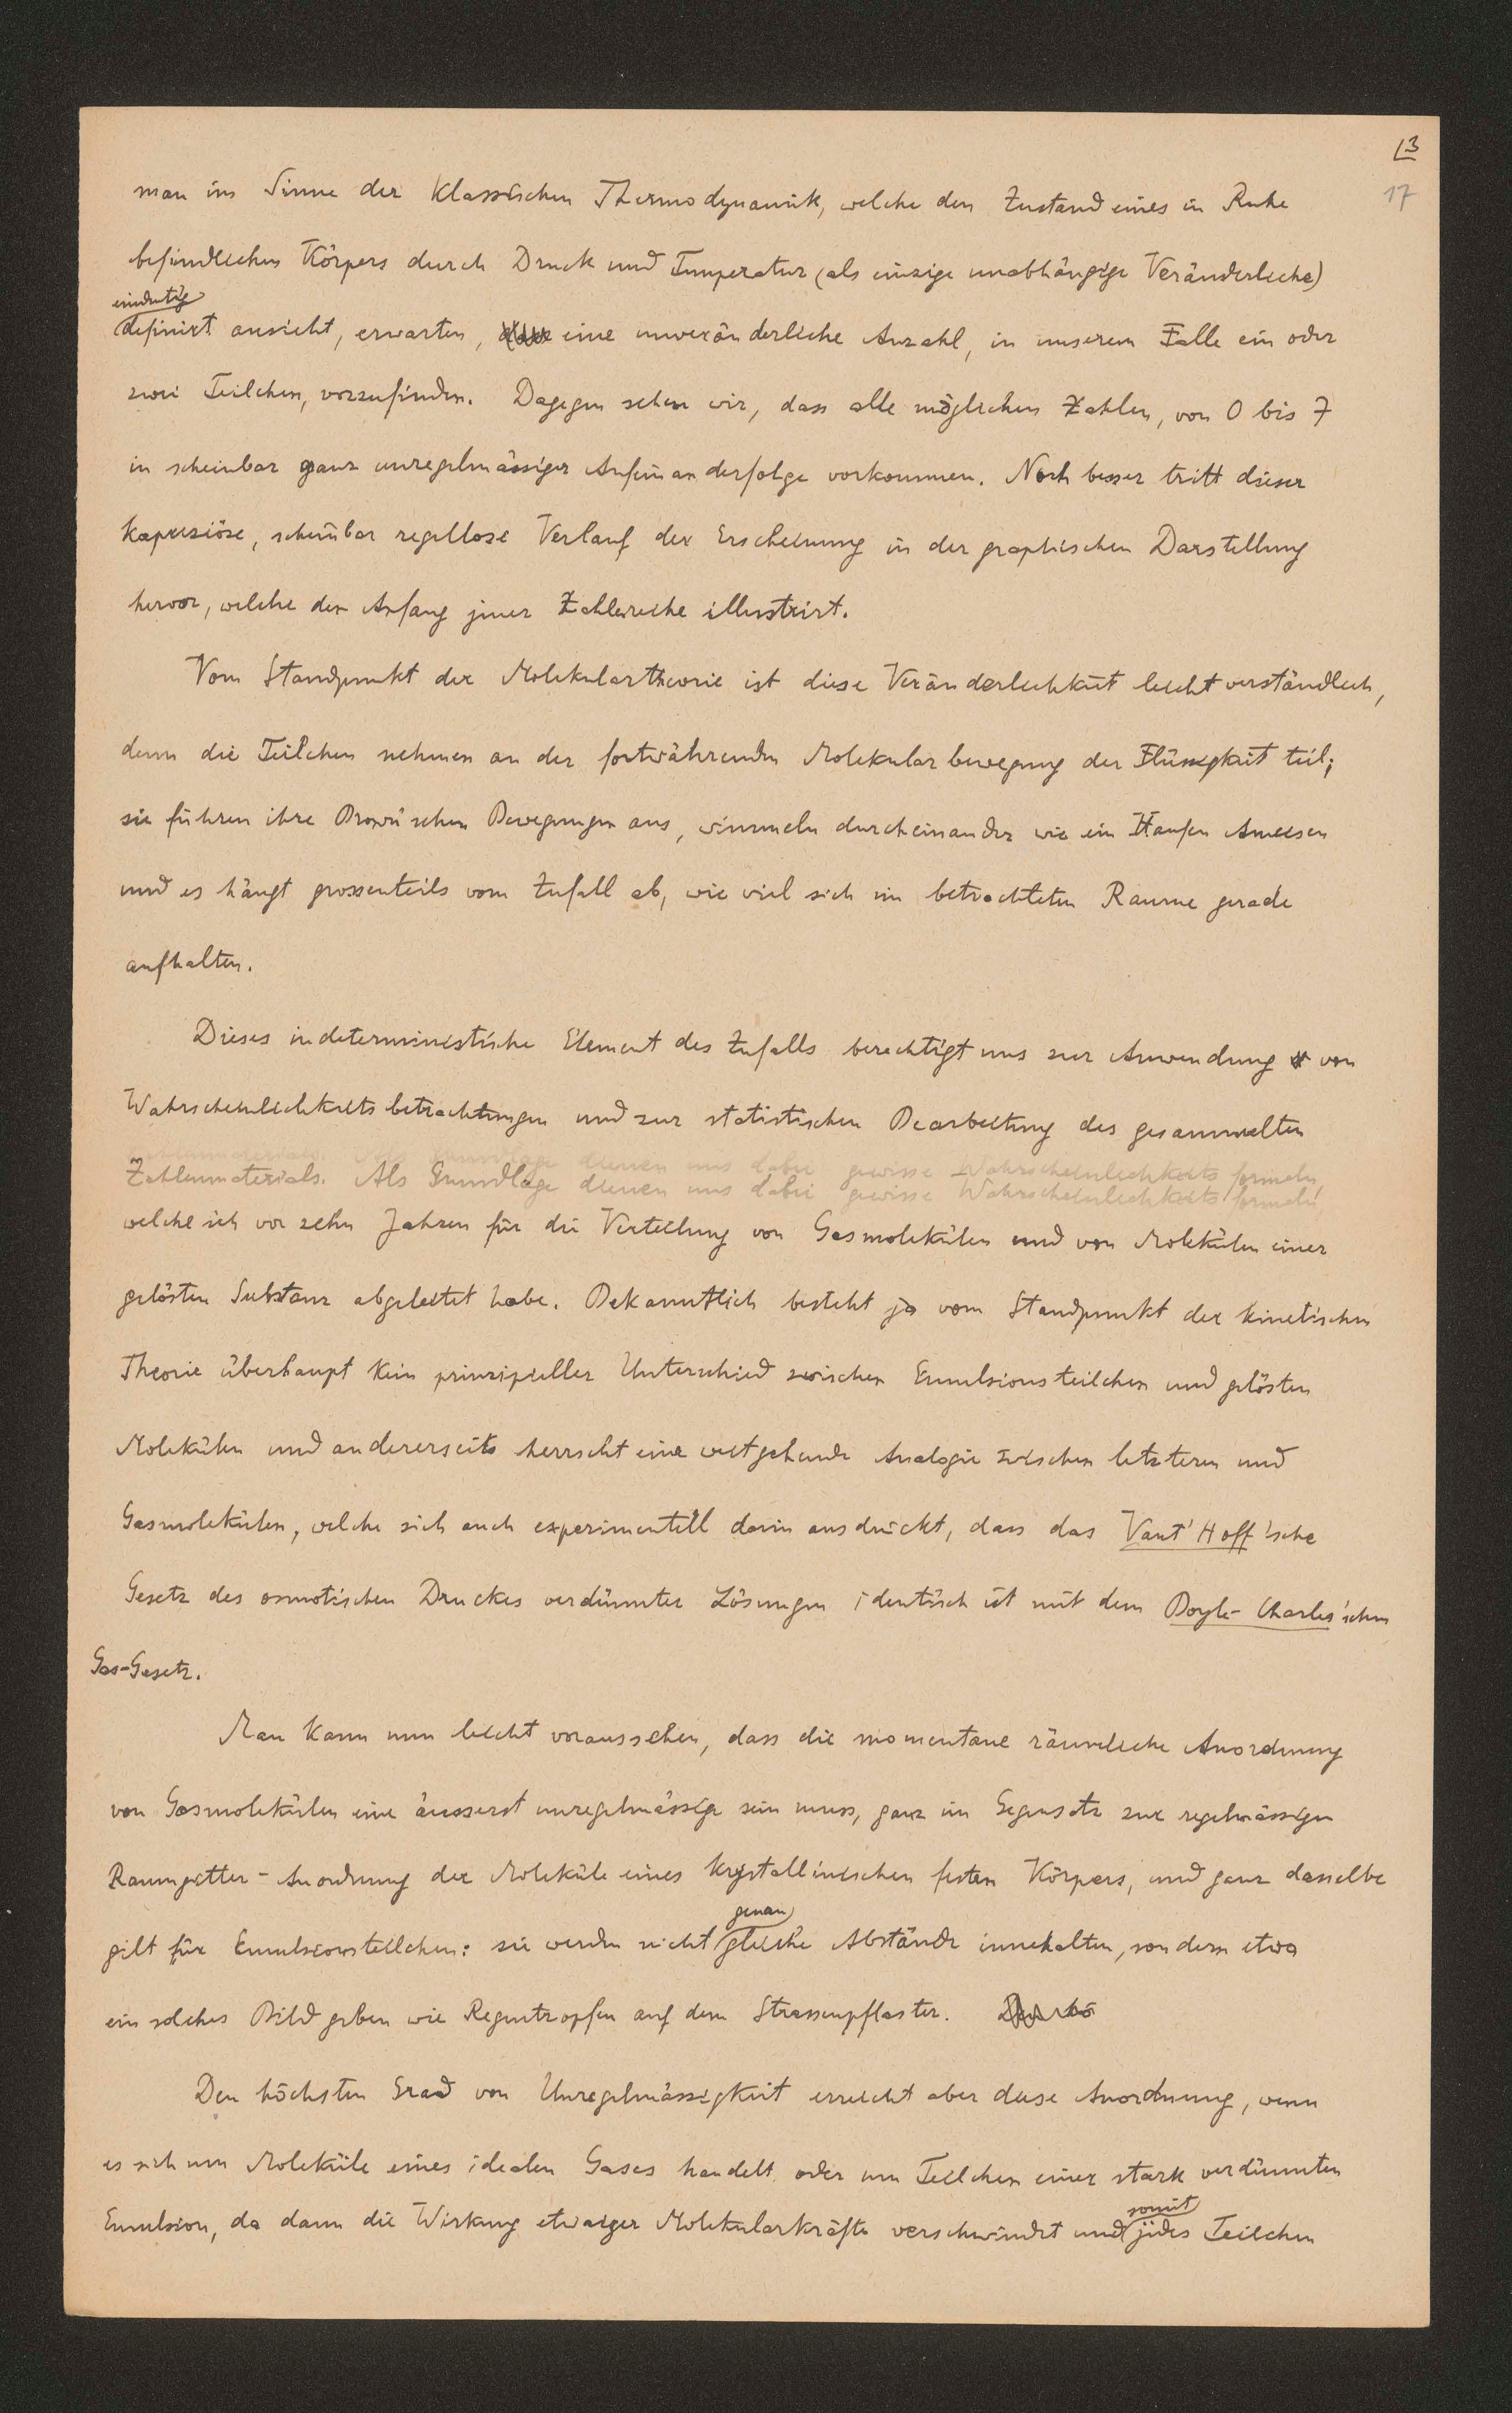 3
17
man im Sinne der klassischen Thermodynamik, welche den Zustand eines in Ruhe
befindlichen Körpers durch Druck und Temperatur (als einzige unabhängige Veränderliche)
eindeutig
definirt ansieht, erwarten, eine unveränderliche Anzahl, in unserem Falle ein oder
zwei Teilchen, vorzufinden. Dagegen sehen wir, dass alle möglichen Zahlen, von 0 bis 7
in scheinbar ganz unregelmässiger Aufeinanderfolge vorkommen. Noch besser tritt dieser
kapriziöse, scheinbar regellose Verlauf der Erscheinung in der graphischen Darstellung
hervor, welche den Anfang jener Zahlenreihe illustrirt.
Vom Standpunkt der Molekulartheorie ist diese Veränderlichkeit leicht verständlich,
denn die Teilchen nehmen an der fortwährenden Molekularbewegung der Flüssigkeit teil;
sie führen ihre Brown'schen Bewegungen aus, wimmeln durcheinander wie ein Haufen Ameisen
und es hängt grossenteils vom Zufall ab, wie viel sich im betrachteten Raume gerade
aufhalten.
Dieses indeterministische Element des Zufalls berechtigt uns zur Anwendung von
Wahrscheinlichkeitsbetrachtungen und zur statistischen Bearbeitung des gesammelten
Zahlenmaterials. Als Grundlage dienen uns dabei gewisse Wahrscheinlichkeitsformeln,
welche ich vor zehn Jahren für die Verteilung von Gasmolekülen und von Molekülen einer
gelösten Substanz abgeleitet habe. Bekanntlich besteht ja vom Standpunkt der kinetischen
Theorie überhaupt kein prinzipieller Unterschied zwischen Emulsionsteilchen und gelösten
Molekülen und andererseits herrscht eine weitgehende Analogie zwischen letzteren und
Gasmolekülen, welche sich auch experimentell darin ausdrückt, dass das Vant' Hoff'sche
Gesetz des osmotischen Druckes verdünnter Lösungen identisch ist mit dem Boyle-Charles'schen
Gas-Gesetz.
Man kann nun leicht voraussehen, dass die momentane räumliche Anordnung
von Gasmolekülen eine äusserst unregelmässige sein muss, ganz im Gegensatz zur regelmässigen
Raumgitter-Anordnung der Moleküle eines krystallinischen festen Körpers, und ganz dasselbe
genau
gilt für Emulsionsteilchen: sie werden nicht gleiche Abstände innehalten, sondern etwa
ein solches Bild geben wie Regentropfen auf dem Strassenpflaster.
Den höchsten Grad von Unregelmässigkeit erreicht aber diese Anordnung, wenn
es sich um Moleküle eines idealen Gases handelt oder um Teilchen einer stark verdünnten
somit
Emulsion, da dann die Wirkung etwaiger Molekularkräfte verschwindet und jedes Teilchen